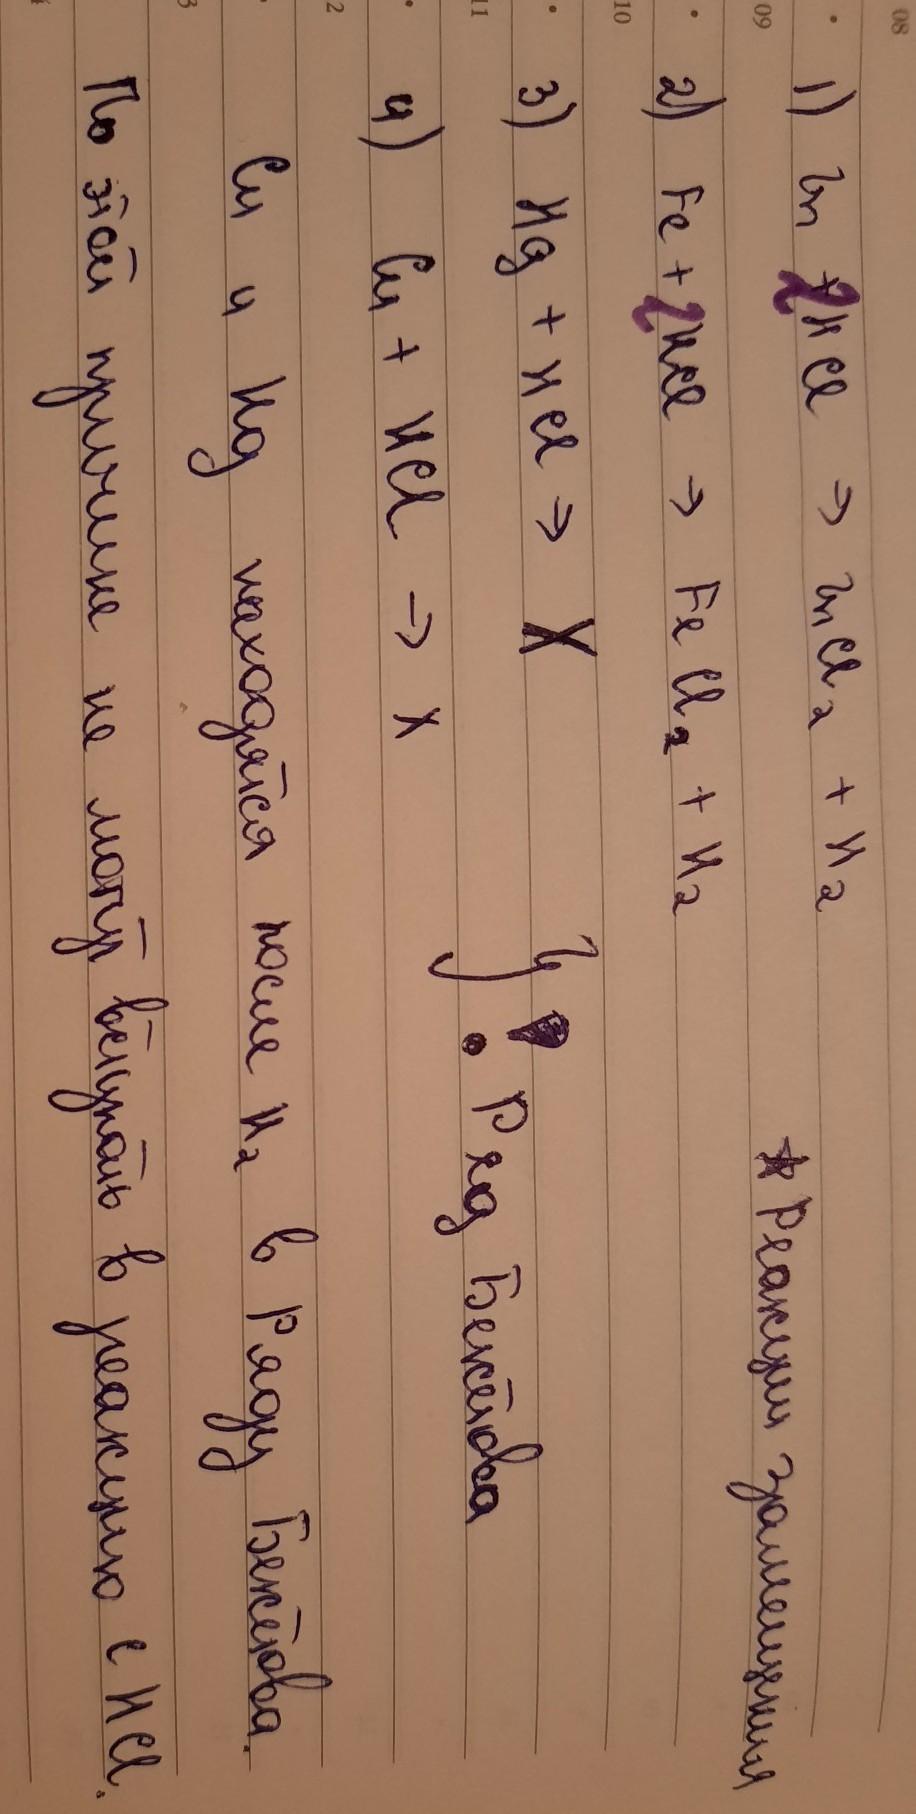 08
1) Zn + 2HCl → ZnCl₂ + H₂
09
* Реакции замещения
2) Fe + 2HCl → FeCl₂ + H₂
10
3) Hg + HCl → X
11
! Ряд Бекетова
4) Cu + HCl → X
2
Cu и Hg находятся после H₂ в Ряду Бекетова.
3
По этой причине не могут вступать в реакцию с HCl.